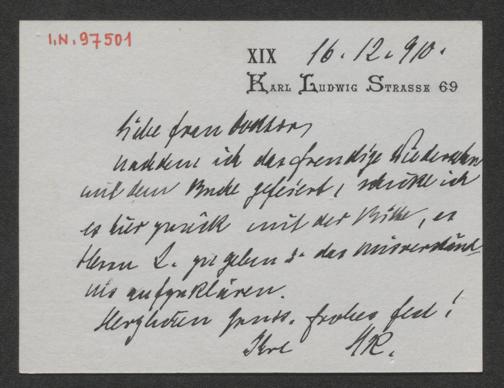 I.N. 97501
XIX 16. 12. 910.
KARL LUDWIG STRASSE 69
Liebe Frau Doktor,
nachdem ich das freudige Wiedersehn
mit dem Buche gefeiert, schicke ich
es hier zurück mit der Bitte, es
Herrn L. zu geben u. das Misverständ-
nis aufzuklären.
Herzlichen Gruss. frohes Fest!
Ihre MR.